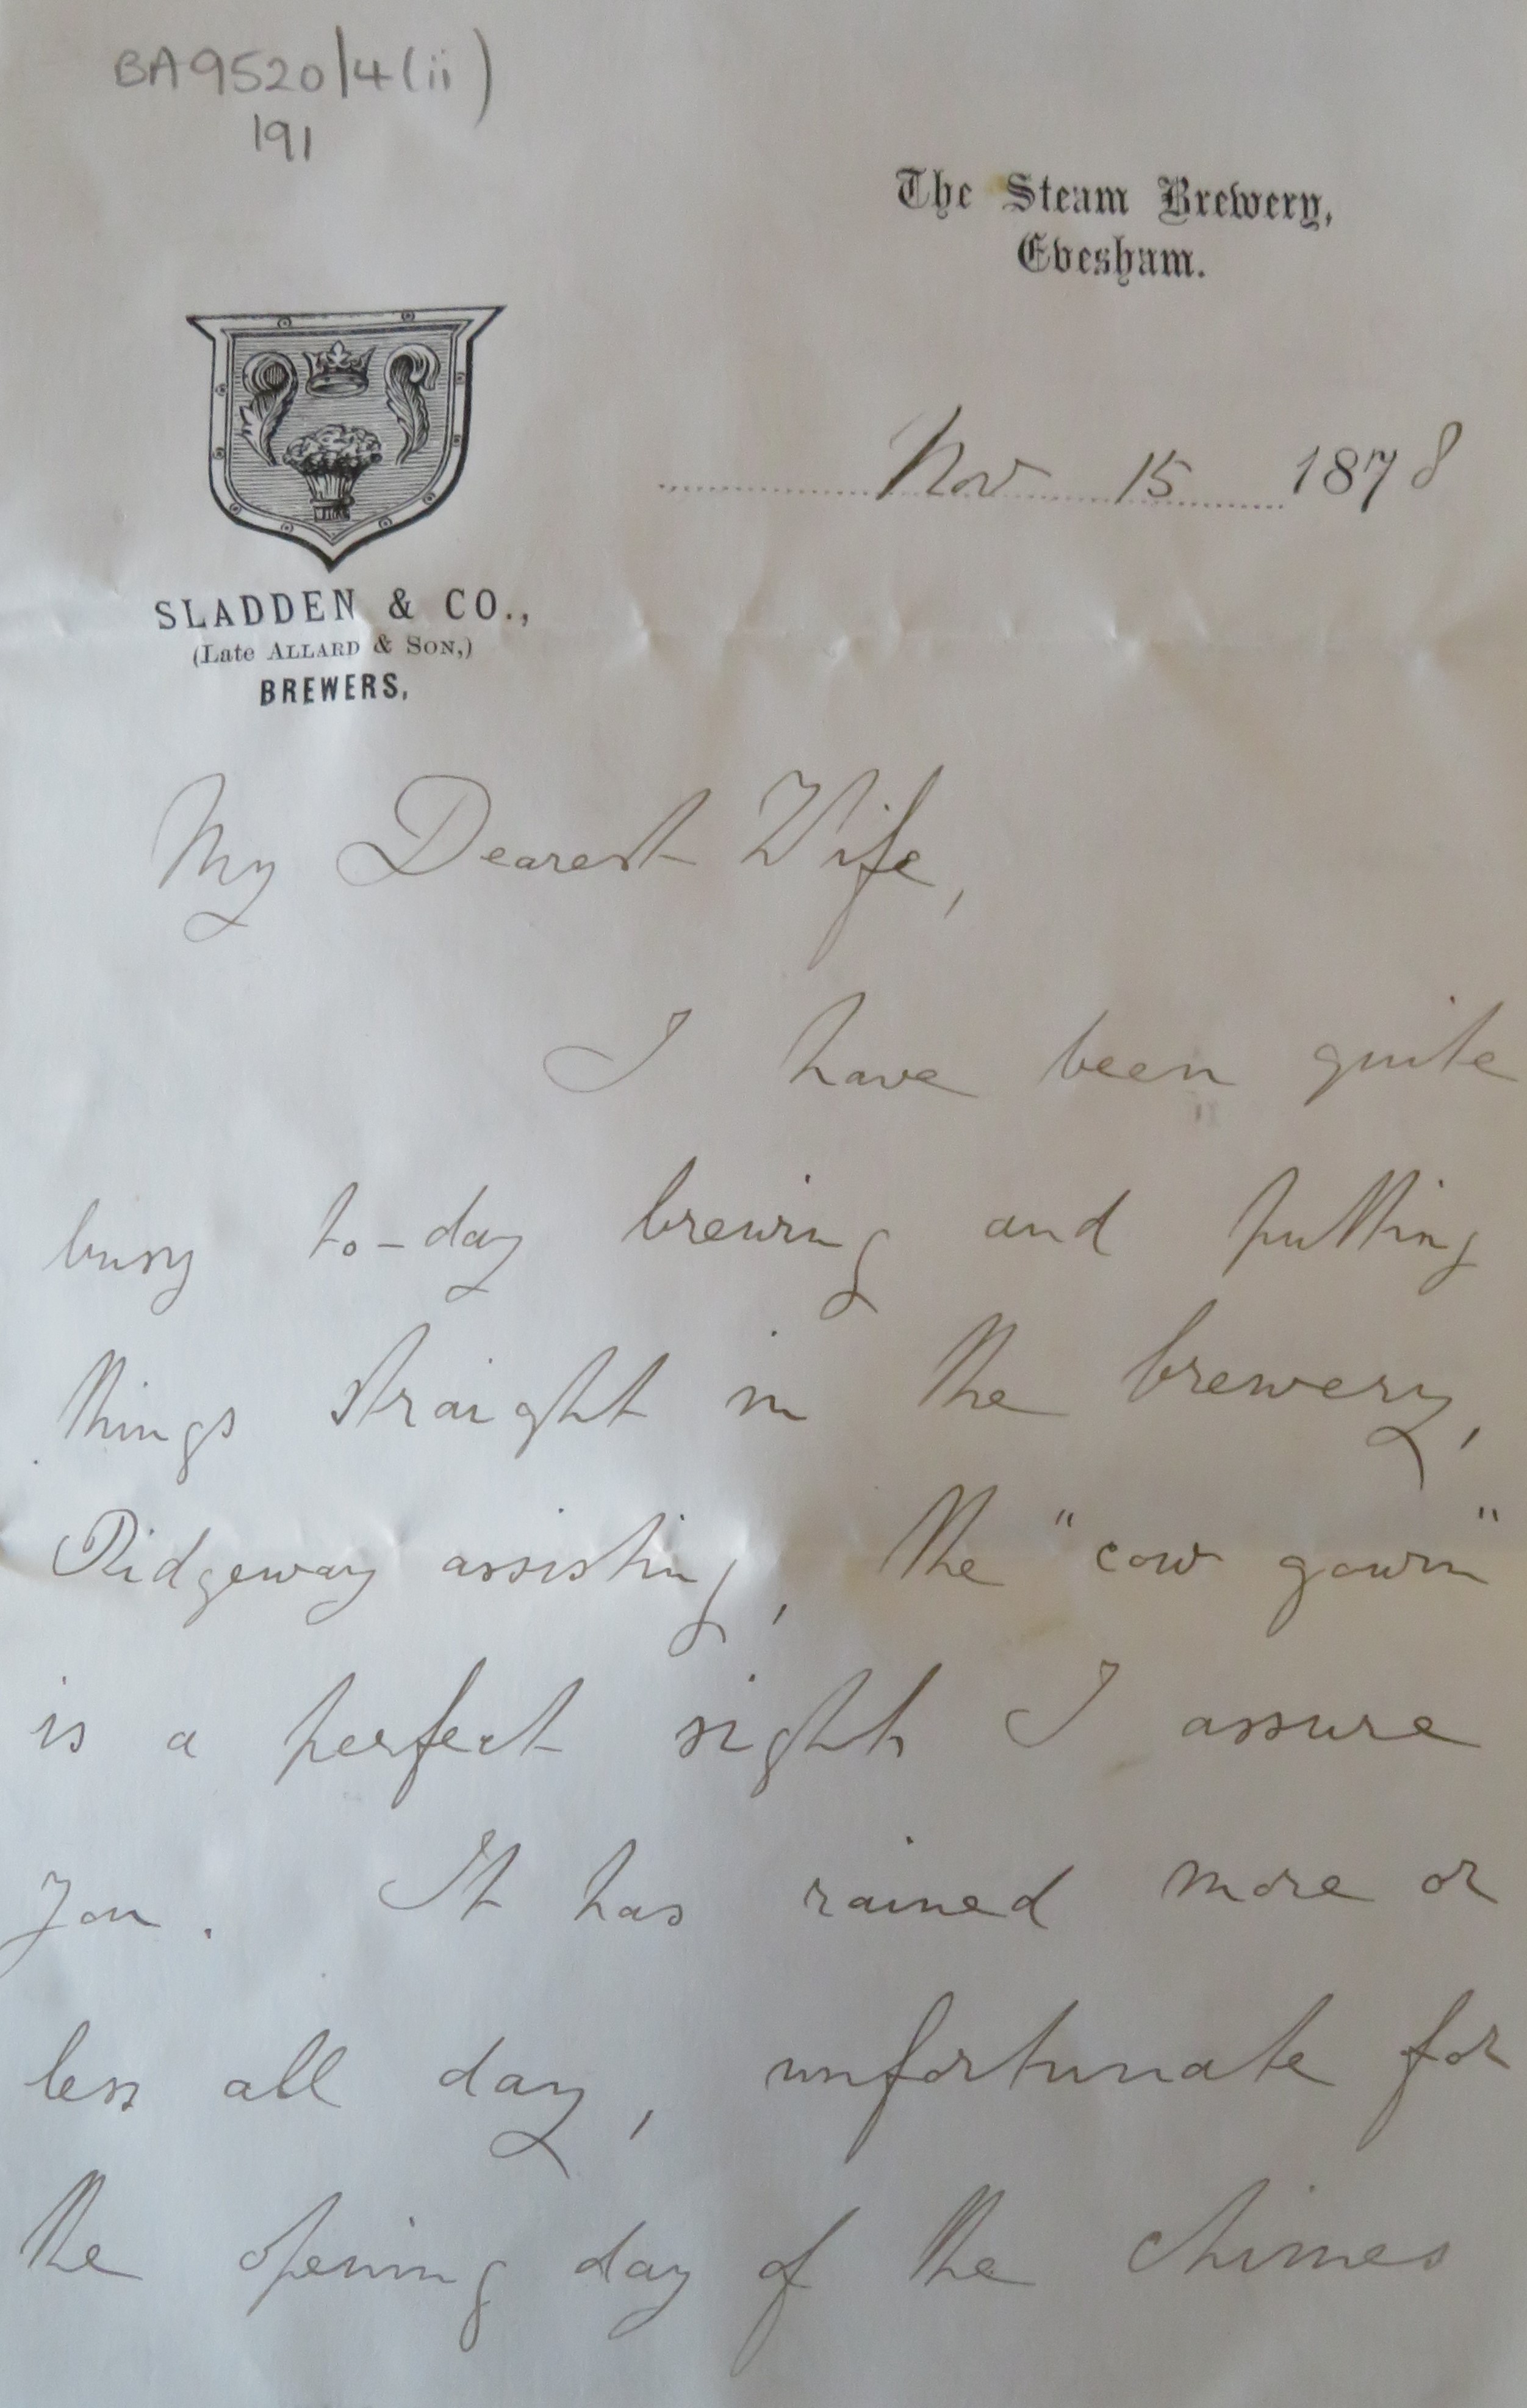 BA9520/4(ii)
191
The Steam Brewery,
Evesham.
Nov 15 1878
SLADDEN & CO.,
(Late ALLARD & SON,)
BREWERS,
My Dearest Wife,
I have been quite
busy to-day brewing and putting
things straight in the brewery,
Ridgeway assisting, the "cow gown"
is a perfect sight I assure
you. It has rained more or
less all day, unfortunate for
the opening day of the chimes